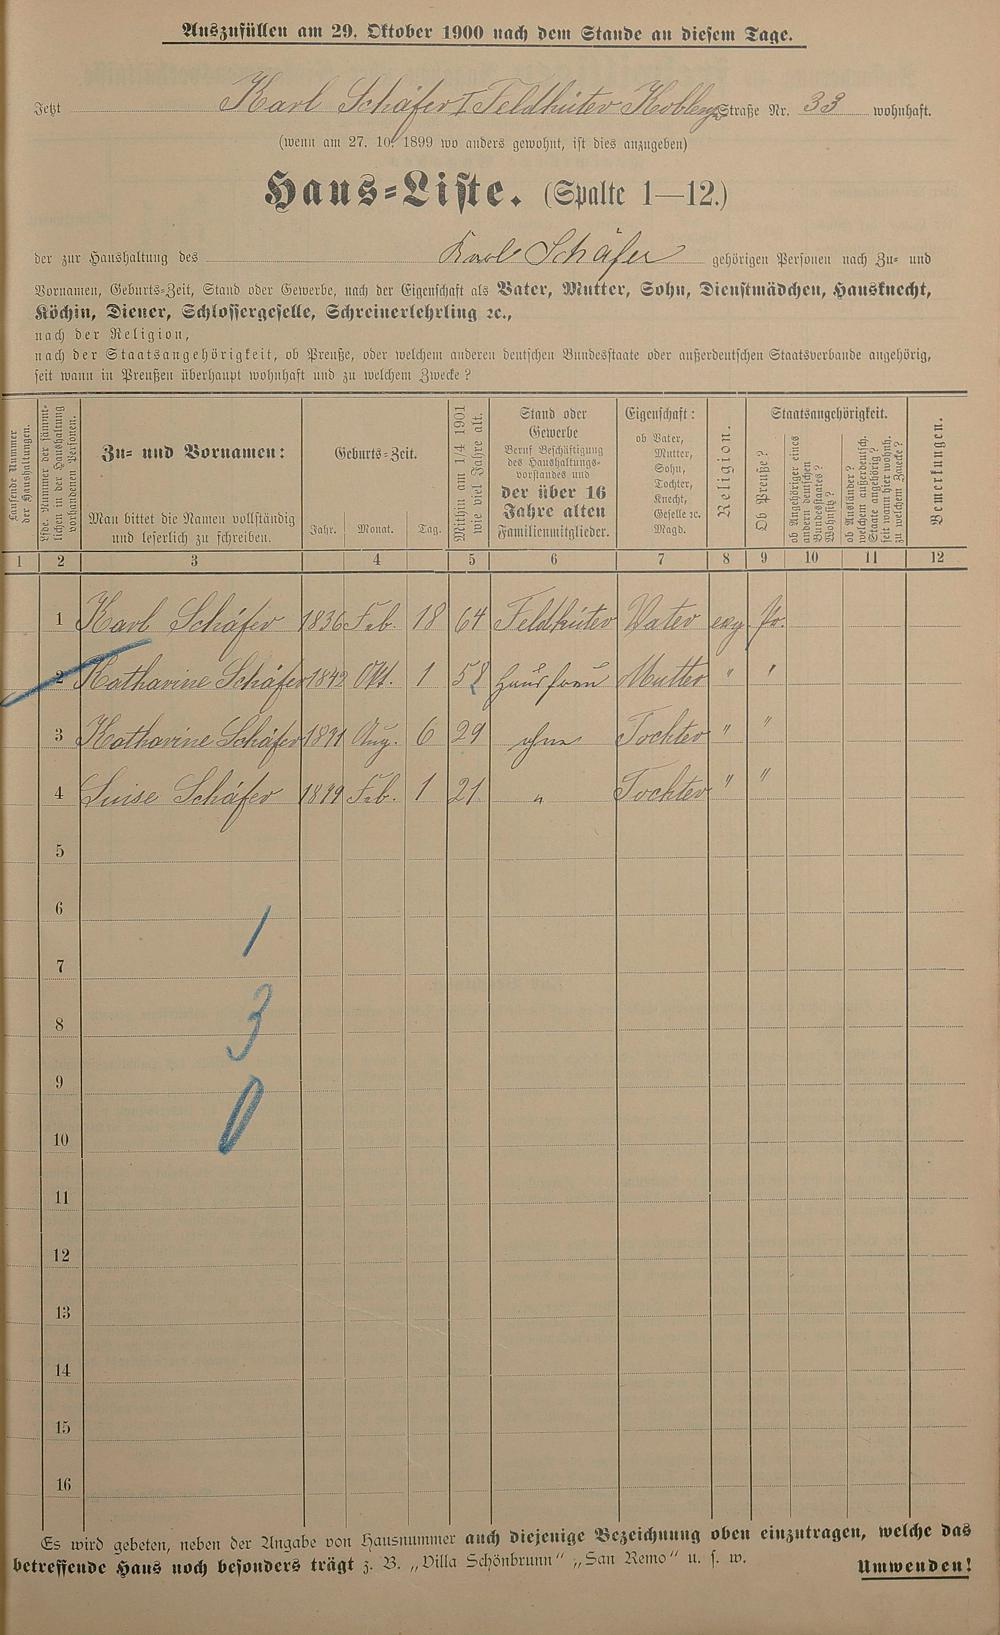 Auszufüllen am 29. Oktober 1900 nach dem Stande an diesem Tage.
Jetzt Karl Schäfer I Feldhüter Koblenz Straße Nr. 33 wohnhaft.
(wenn am 27. 10. 1899 wo anders gewohnt, ist dies anzugeben)
Haus-Liste. (Spalte 1—12.)
der zur Haushaltung des Karl Schäfer gehörigen Personen nach Zu- und
Vornamen, Geburts-Zeit, Stand oder Gewerbe, nach der Eigenschaft als Vater, Mutter, Sohn, Dienstmädchen, Hausknecht,
Köchin, Diener, Schlossergeselle, Schreinerlehrling ꝛc.,
nach der Religion,
nach der Staatsangehörigkeit, ob Preuße, oder welchem anderen deutschen Bundesstaate oder außerdeutschen Staatsverbande angehörig,
seit wann in Preußen überhaupt wohnhaft und zu welchem Zwecke?
Laufende Nummer
der Haushaltungen.
Lfde. Nummer der sämmt-
lichen in der Haushaltung
vorhandenen Personen.
Zu- und Vornamen:
Man bittet die Namen vollständig
und leserlich zu schreiben.
Geburts-Zeit.
Jahr. Monat. Tag.
Mithin am 1/4 1901
wie viel Jahre alt.
Stand oder
Gewerbe
Beruf Beschäftigung
des Haushaltungs-
vorstandes und
der über 16
Jahre alten
Familienmitglieder.
Eigenschaft:
ob Vater,
Mutter,
Sohn,
Tochter,
Knecht,
Geselle ꝛc.
Magd.
Religion.
Staatsangehörigkeit.
Ob Preuße?
ob Angehöriger eines
andern deutschen
Bundesstaates?
Wohnsitz?
ob Ausländer?
welchem außerdeutsch.
Staate angehörig?
seit wann hier wohnh.
zu welchem Zwecke?
Bemerkungen.
1 2 3 4 5 6 7 8 9 10 11 12
1 Karl Schäfer 1836 Feb. 18 64 Feldhüter Vater evg. Pr.
2 Katharine Schäfer 1842 Okt. 1 58 Hausfrau Mutter " "
3 Katharine Schäfer 1871 Aug. 6 29 ohne Tochter " "
4 Luise Schäfer 1879 Feb. 1 21 " Tochter " "
5
6
1
7
8 3
9
0
10
11
12
13
14
15
16
Es wird gebeten, neben der Angabe von Hausnummer auch diejenige Bezeichnung oben einzutragen, welche das
betreffende Haus noch besonders trägt z. B. „Villa Schönbrunn" „San Remo" u. s. w.
Umwenden!